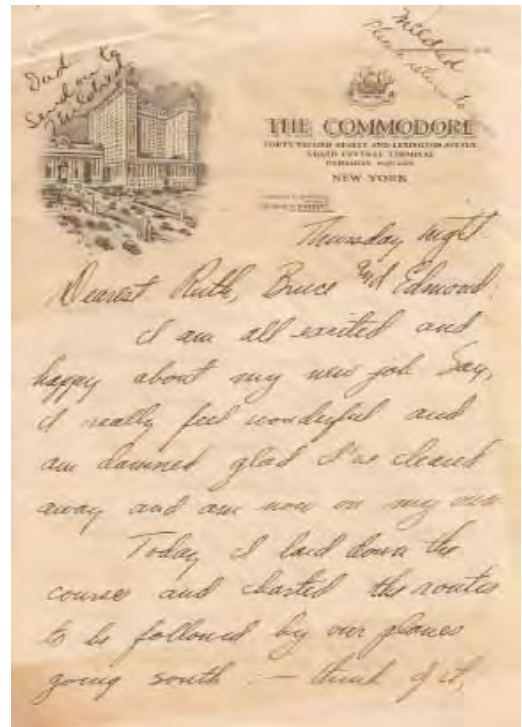 Dad
Send on to
Mildred
Mildred
Please return to
THE COMMODORE
FORTY-SECOND STREET AND LEXINGTON AVENUE
GRAND CENTRAL TERMINAL
PERSHING SQUARE
NEW YORK
Thursday night.
Dearest Ruth, Bruce and Edmond.
I am all excited and
happy about my new job Say,
I really feel wonderful and
am damned glad I've cleared
away and am now on my own
Today I laid down the
course and charted the routes
to be followed by our planes
going south — think of it,